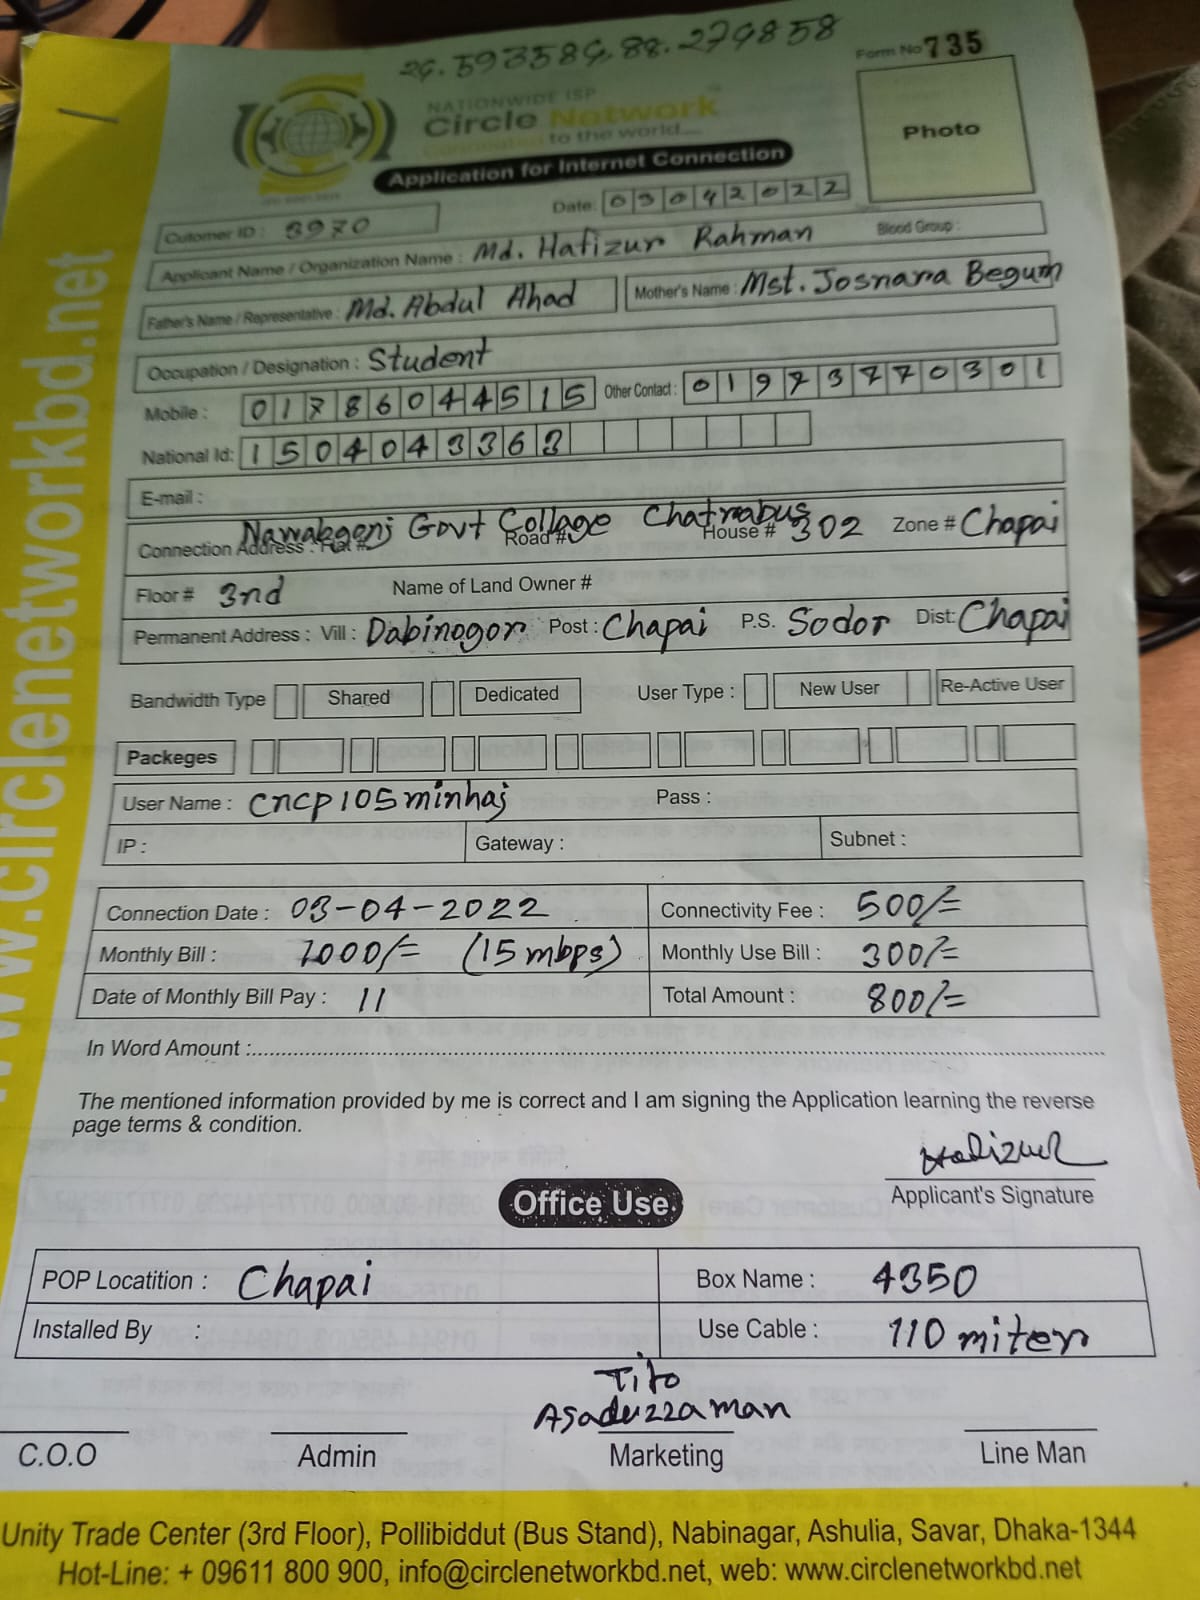 24.593584, 88.279858
Form No 735
NATIONWIDE ISP
Circle Network
Connected to the world....
Photo
Application for Internet Connection
Date: 03042022
Cutomer ID : 3970
Applicant Name / Organization Name : Md. Hafizur Rahman Blood Group :
Father's Name / Representative : Md. Abdul Ahad Mother's Name : Mst. Josnara Begum
Occupation / Designation : Student
Mobile : 01786044515 Other Contact : 01973770301
National Id: 1504043363
E-mail :
Nawabgonj Govt Collage Chatrabus
Connection Address : Flat # Road # House # 302 Zone # Chapai
Floor # 3nd Name of Land Owner #
Permanent Address : Vill : Dabinogor Post : Chapai P.S. Sodor Dist: Chapai
Bandwidth Type Shared Dedicated User Type : New User Re-Active User
Packeges
User Name : cncp105minhaj Pass :
IP : Gateway : Subnet :
Connection Date : 03-04-2022 Connectivity Fee : 500/=
Monthly Bill : 1000/= (15 mbps) Monthly Use Bill : 300/=
Date of Monthly Bill Pay : 11 Total Amount : 800/=
In Word Amount :
The mentioned information provided by me is correct and I am signing the Application learning the reverse
page terms & condition.
Hafizur
Applicant's Signature
Office Use
POP Locatition : Chapai Box Name : 4350
Installed By : Use Cable : 110 miter
Tito
Asaduzzaman
C.O.O Admin Marketing Line Man
Unity Trade Center (3rd Floor), Pollibiddut (Bus Stand), Nabinagar, Ashulia, Savar, Dhaka-1344
Hot-Line: + 09611 800 900, info@circlenetworkbd.net, web: www.circlenetworkbd.net
www.circlenetworkbd.net